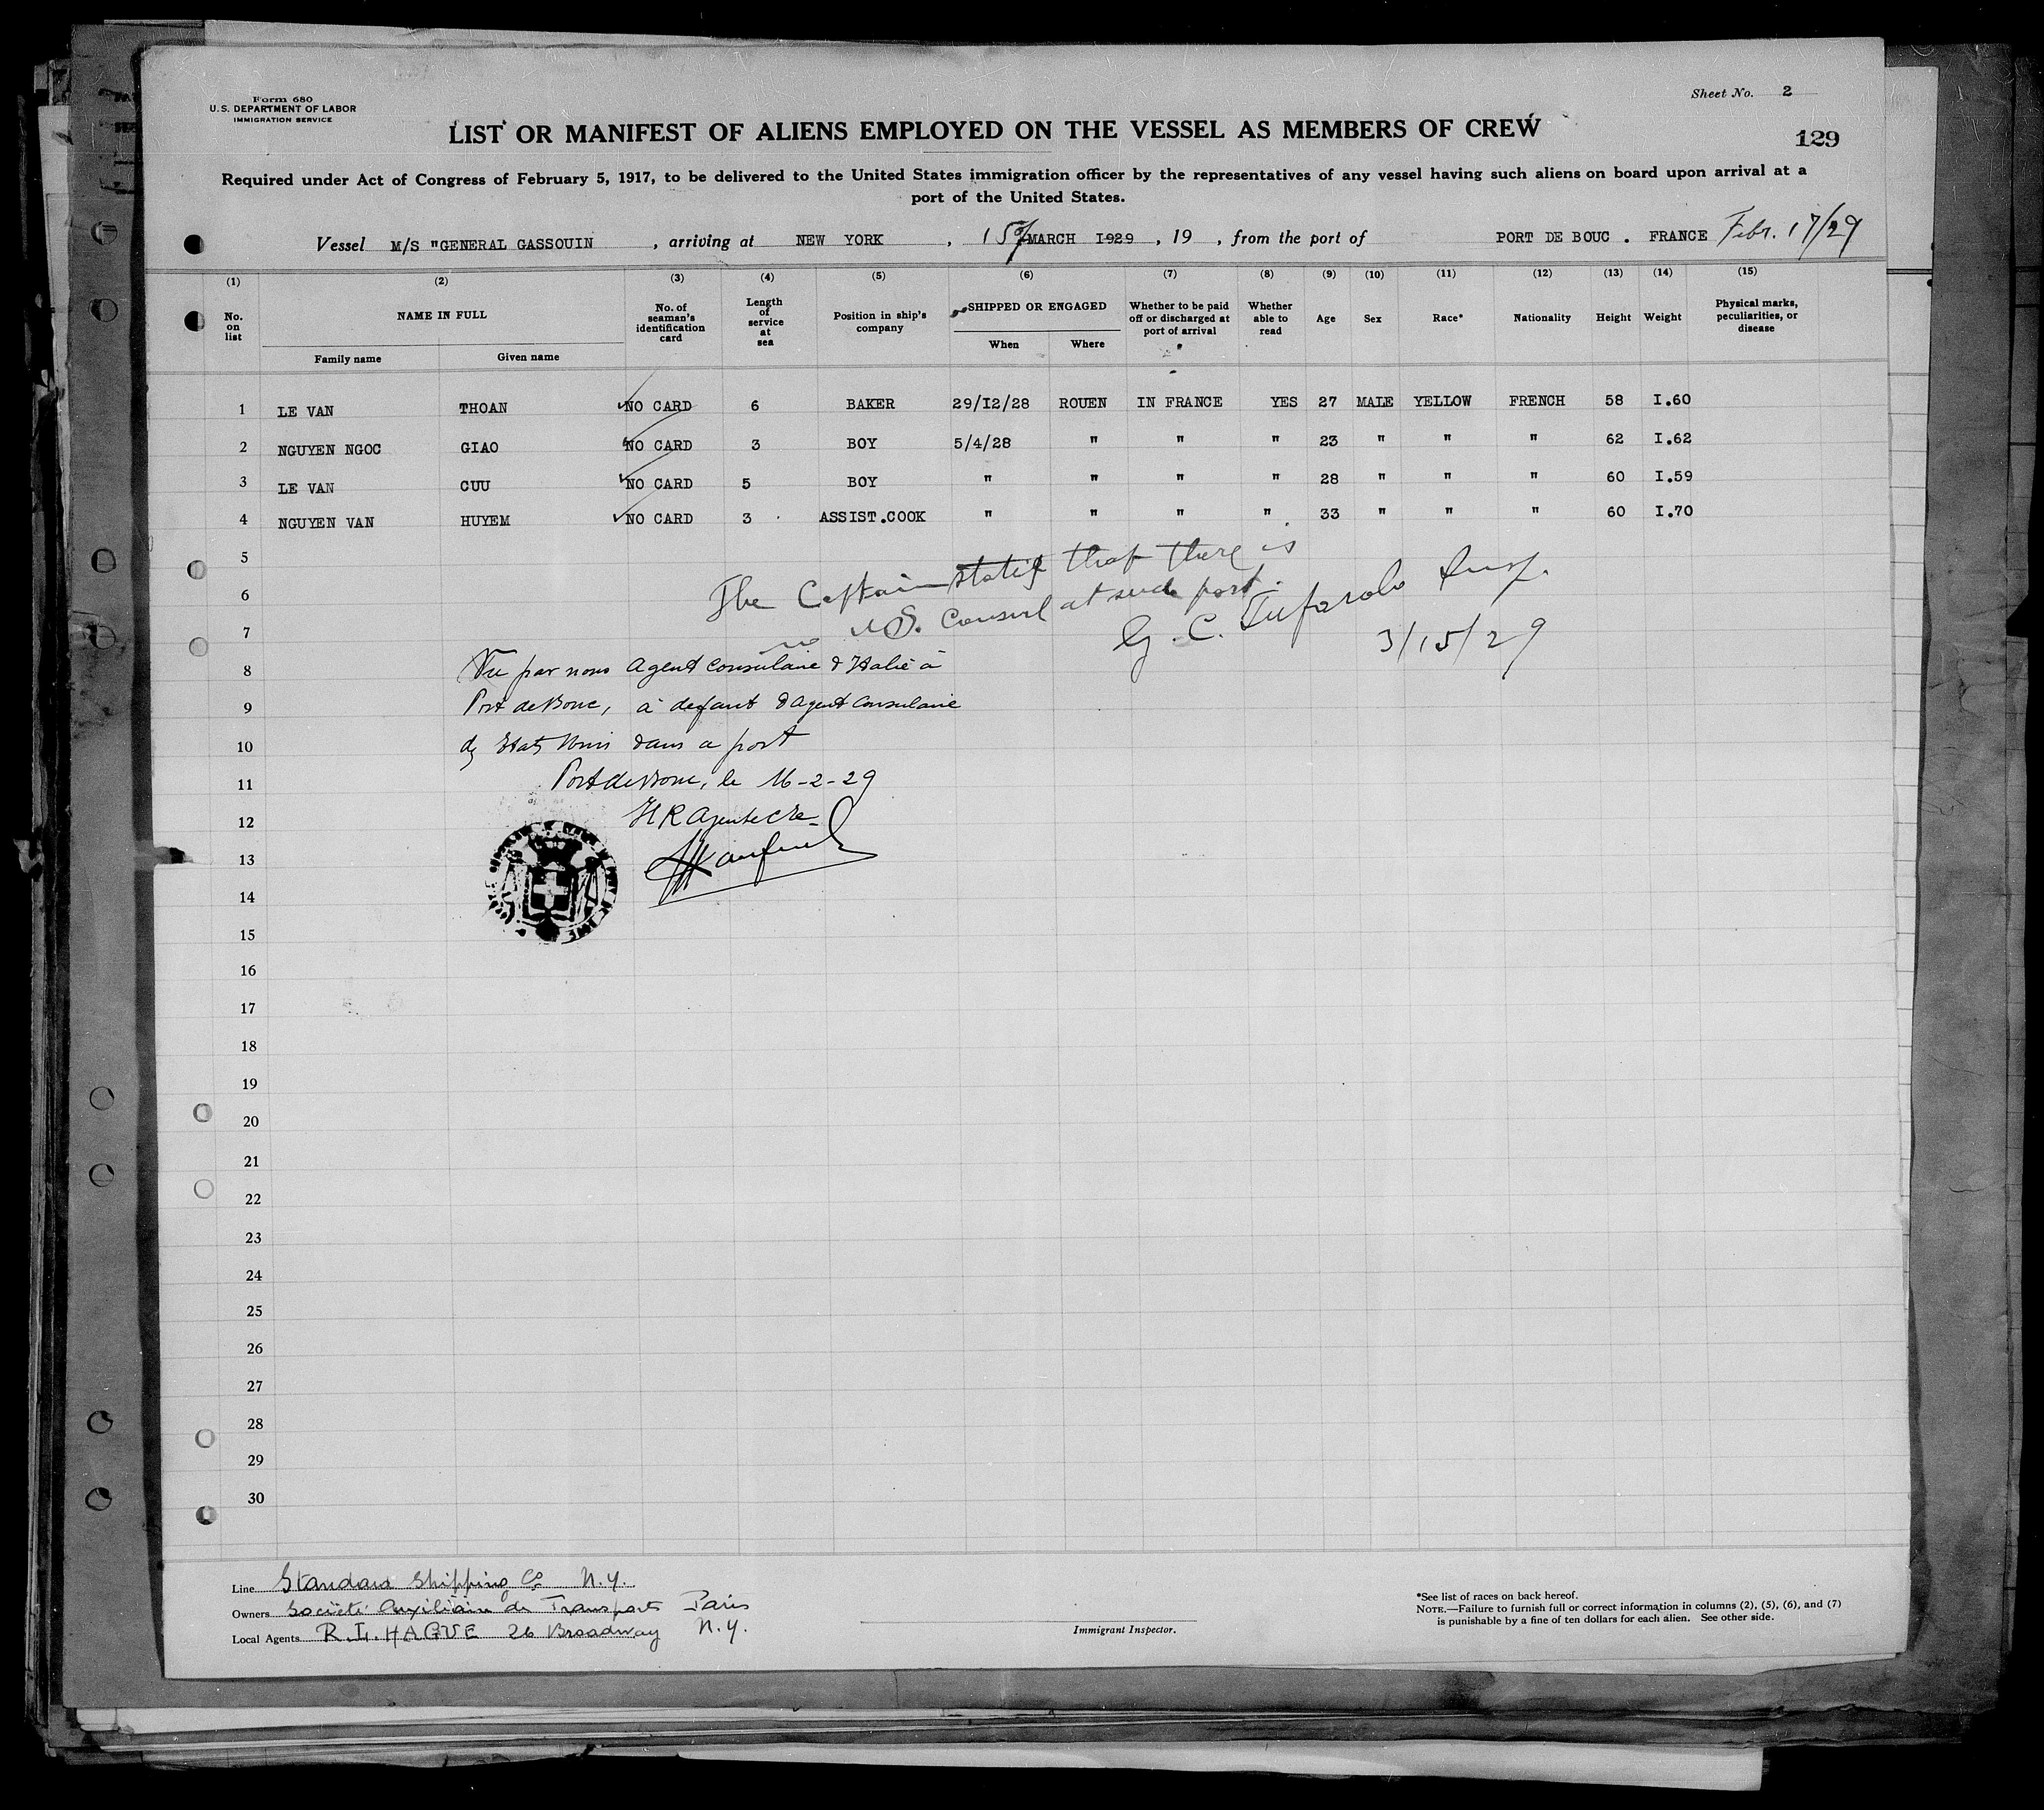 Form 680
U.S. DEPARTMENT OF LABOR
IMMIGRATION SERVICE
Sheet No. 2
129
LIST OR MANIFEST OF ALIENS EMPLOYED ON THE VESSEL AS MEMBERS OF CREW
Required under Act of Congress of February 5, 1917, to be delivered to the United States immigration officer by the representatives of any vessel having such aliens on board upon arrival at a
port of the United States.
Vessel M/S "GENERAL GASSOUIN , arriving at NEW YORK , 15 MARCH I929 , 19 , from the port of PORT DE BOUC . FRANCE Febr. 17/29
(1) (2) (3) (4) (5) (6) (7) (8) (9) (10) (11) (12) (13) (14) (15)
No. on list NAME IN FULL Family name Given name No. of seaman's identification card Length of service at sea Position in ship's company SHIPPED OR ENGAGED When Where Whether to be paid off or discharged at port of arrival Whether able to read Age Sex Race* Nationality Height Weight Physical marks, peculiarities, or disease
1 LE VAN THOAN NO CARD 6 BAKER 29/I2/28 ROUEN IN FRANCE YES 27 MALE YELLOW FRENCH 58 I.60
2 NGUYEN NGOC GIAO NO CARD 3 BOY 5/4/28 " " " 23 " " " 62 I.62
3 LE VAN CUU NO CARD 5 BOY " " " " 28 " " " 60 I.59
4 NGUYEN VAN HUYEM NO CARD 3 ASSIST.COOK " " " " 33 " " " 60 I.70
5
The Captain states that there is
6
no U.S. Consul at such port.
G. C. Insp.
7
3/15/29
8 Vu par nous Agent Consulaire d'Italie à
9 Port de Bouc, à defaut d'agent consulaire
10 des Etats Unis dans ce port
11 Port de Bouc, le 16-2-29
12
13
14
15
16
17
18
19
20
21
22
23
24
25
26
27
28
29
30
Line Standard Shipping Co N.Y.
Owners Société Auxiliaire de Transports Paris
Local Agents R.L. HAGUE 26 Broadway N.Y.
Immigrant Inspector.
*See list of races on back hereof.
NOTE.—Failure to furnish full or correct information in columns (2), (5), (6), and (7)
is punishable by a fine of ten dollars for each alien. See other side.